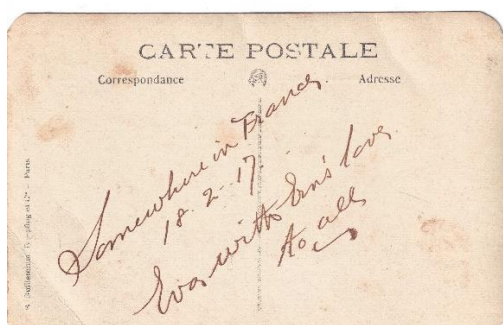 CARTE POSTALE
Correspondance
Adresse
Somewhere in France
18.2.17.
Eva, with Ern's love
to all
et Cie - Paris